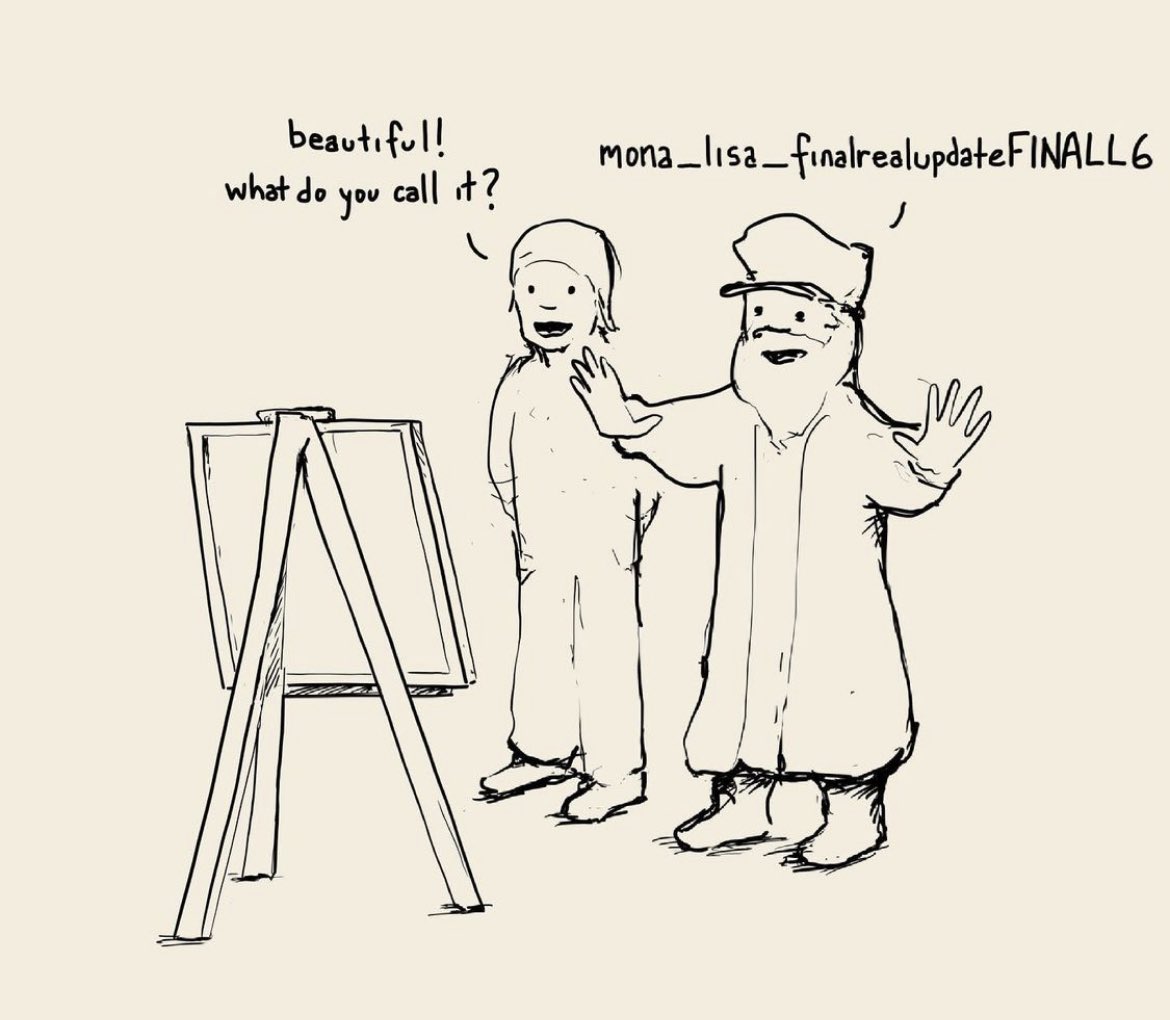 beautiful!
what do you call it?
mona_lisa_finalrealupdateFINALL6